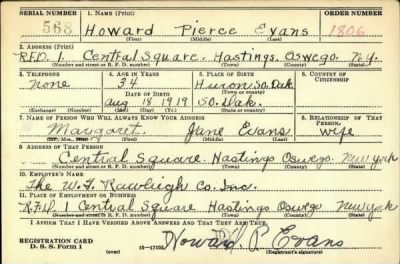 SERIAL NUMBER
1. NAME (Print)
ORDER NUMBER
568
Howard Pierce Evans
1806
(First) (Middle) (Last)
2. ADDRESS (Print)
R.F.D. 1 Central Square. Hastings. Oswego. N.Y.
(Number and street or R. F. D. number) (Town) (County) (State)
3. TELEPHONE
4. AGE IN YEARS
5. PLACE OF BIRTH
6. COUNTRY OF CITIZENSHIP
none
34
Huron So. Dak
DATE OF BIRTH
(Town or county)
Aug 18 1919
So. Dak.
(Exchange) (Number)
(Mo.) (Day) (Yr.)
(State or country)
7. NAME OF PERSON WHO WILL ALWAYS KNOW YOUR ADDRESS
8. RELATIONSHIP OF THAT PERSON
Margaret. Jane Evans
wife
(Mr., Mrs., Miss) (First) (Middle) (Last)
9. ADDRESS OF THAT PERSON
Central Square. Hastings Oswego. New York
(Number and street or R. F. D. number) (Town) (County) (State)
10. EMPLOYER'S NAME
The W.T. Rawleigh Co. Inc.
11. PLACE OF EMPLOYMENT OR BUSINESS
R.F.D. 1 Central Square Hastings Oswego New York
(Number and street or R. F. D. number) (Town) (County) (State)
I AFFIRM THAT I HAVE VERIFIED ABOVE ANSWERS AND THAT THEY ARE TRUE.
REGISTRATION CARD
D. S. S. Form 1
Howard P. Evans
(Registrant's signature)